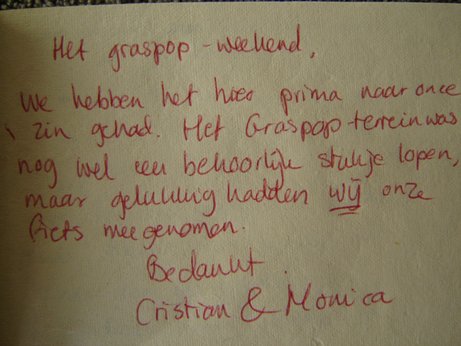 Het graspop-weekend,
We hebben het hier prima naar onze
zin gehad. Het Graspop-terrein was
nog wel een behoorlijk stukje lopen,
maar gelukkig hadden wij onze
fiets meegenomen.
Bedankt
Cristian & Monica